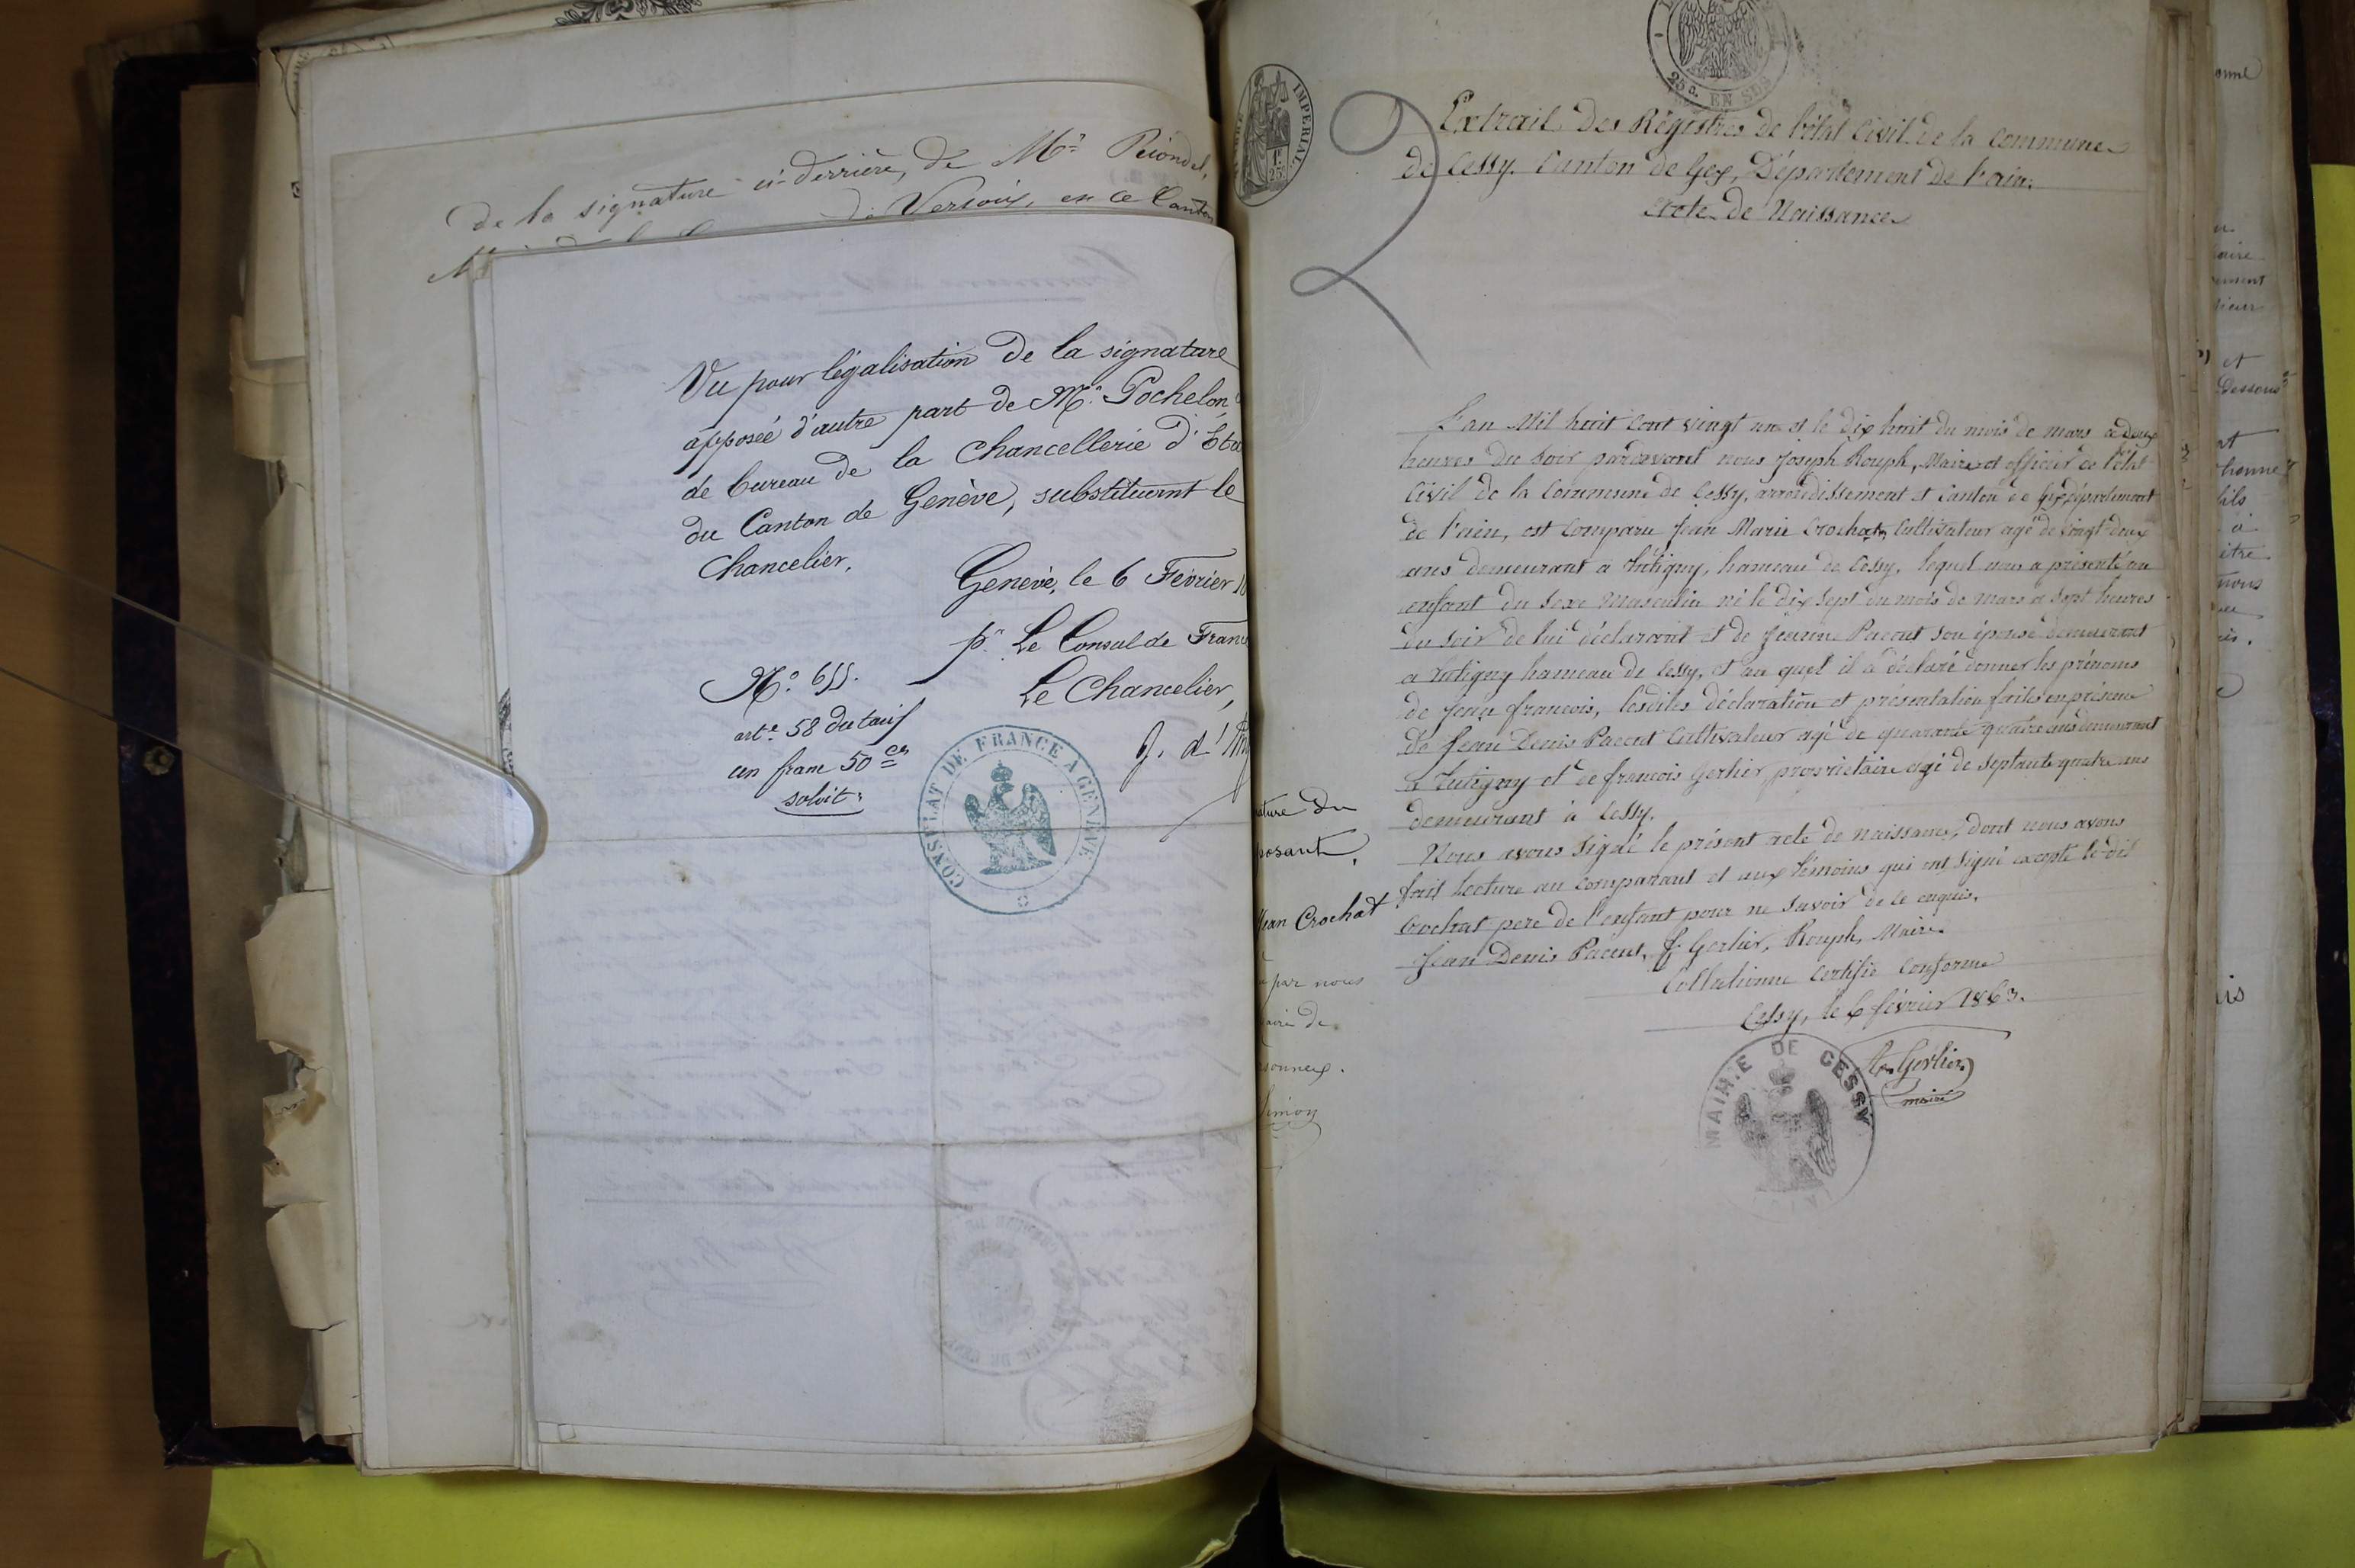 de la signature ci-derrière, de Mr
de Versoix, en ce Canton
Vu pour légalisation de la signature
apposée d'autre part de Mr. Pochelon
de bureau de la Chancellerie d'Eta
du Canton de Genève, substituant le
Chancelier.
Genève, le 6 Février 18
pr. Le Consul de Franc
Le Chancelier,
No. 655.
arte. 58 du tarif
un franc 50 ces
solvit.
CONSULAT DE FRANCE A GENEVE
ature du
posant,
Jean Crochat
par nous
aire de
sonnex.
TIMBRE IMPERIAL
1F 25c
25c. EN SUS
2
Extrait des Régistres de l'état Civil de la Commune
de Cessy. Canton de Gex, Département de l'ain.
Acte de Naissance
L'an Mil huit Cent vingt un et le dix huit du mois de mars a deux
heures du soir pardevant nous Joseph Rouph, Maire et officier de l'état
Civil de la Commune de Cessy, arrondissement et Canton de Gex, département
de l'ain, est Comparu Jean Marie Crochat, Cultivateur agé de vingt-deux
ans demeurant a Tutigny, hameau de Cessy, lequel nous a présenté un
enfant du sexe Masculin né le dix sept du mois de mars a sept heures
du soir de lui déclarant et de Jeanne Pacout son épouse demeurant
a Tutigny hameau de Cessy, et au quel il a déclaré donner les prénoms
de Jean françois, lesdites déclaration et présentation faites en présence
de Jean Denis Pacout Cultivateur agé de quarante quatre ans demeurant
a Tutigny et de françois Gerlier, proprietaire agé de septante quatre ans
demeurant à Cessy.
Nous avons Signé le présent acte de naissance, dont nous avons
fait lecture au Comparant et aux témoins qui ont Signé excepté le dit
Crochat pere de l'enfant pour ne Savoir de le enquis.
Jean Denis Pacout, f. Gerlier, Rouph, Maire.
Collationné Certifié Conforme
Cessy, le 6 février 1863.
Gerlier
maire
MAIRIE DE CESSY
onne
aire
ement
sieur
et
Dessous
fils
à
être
nous